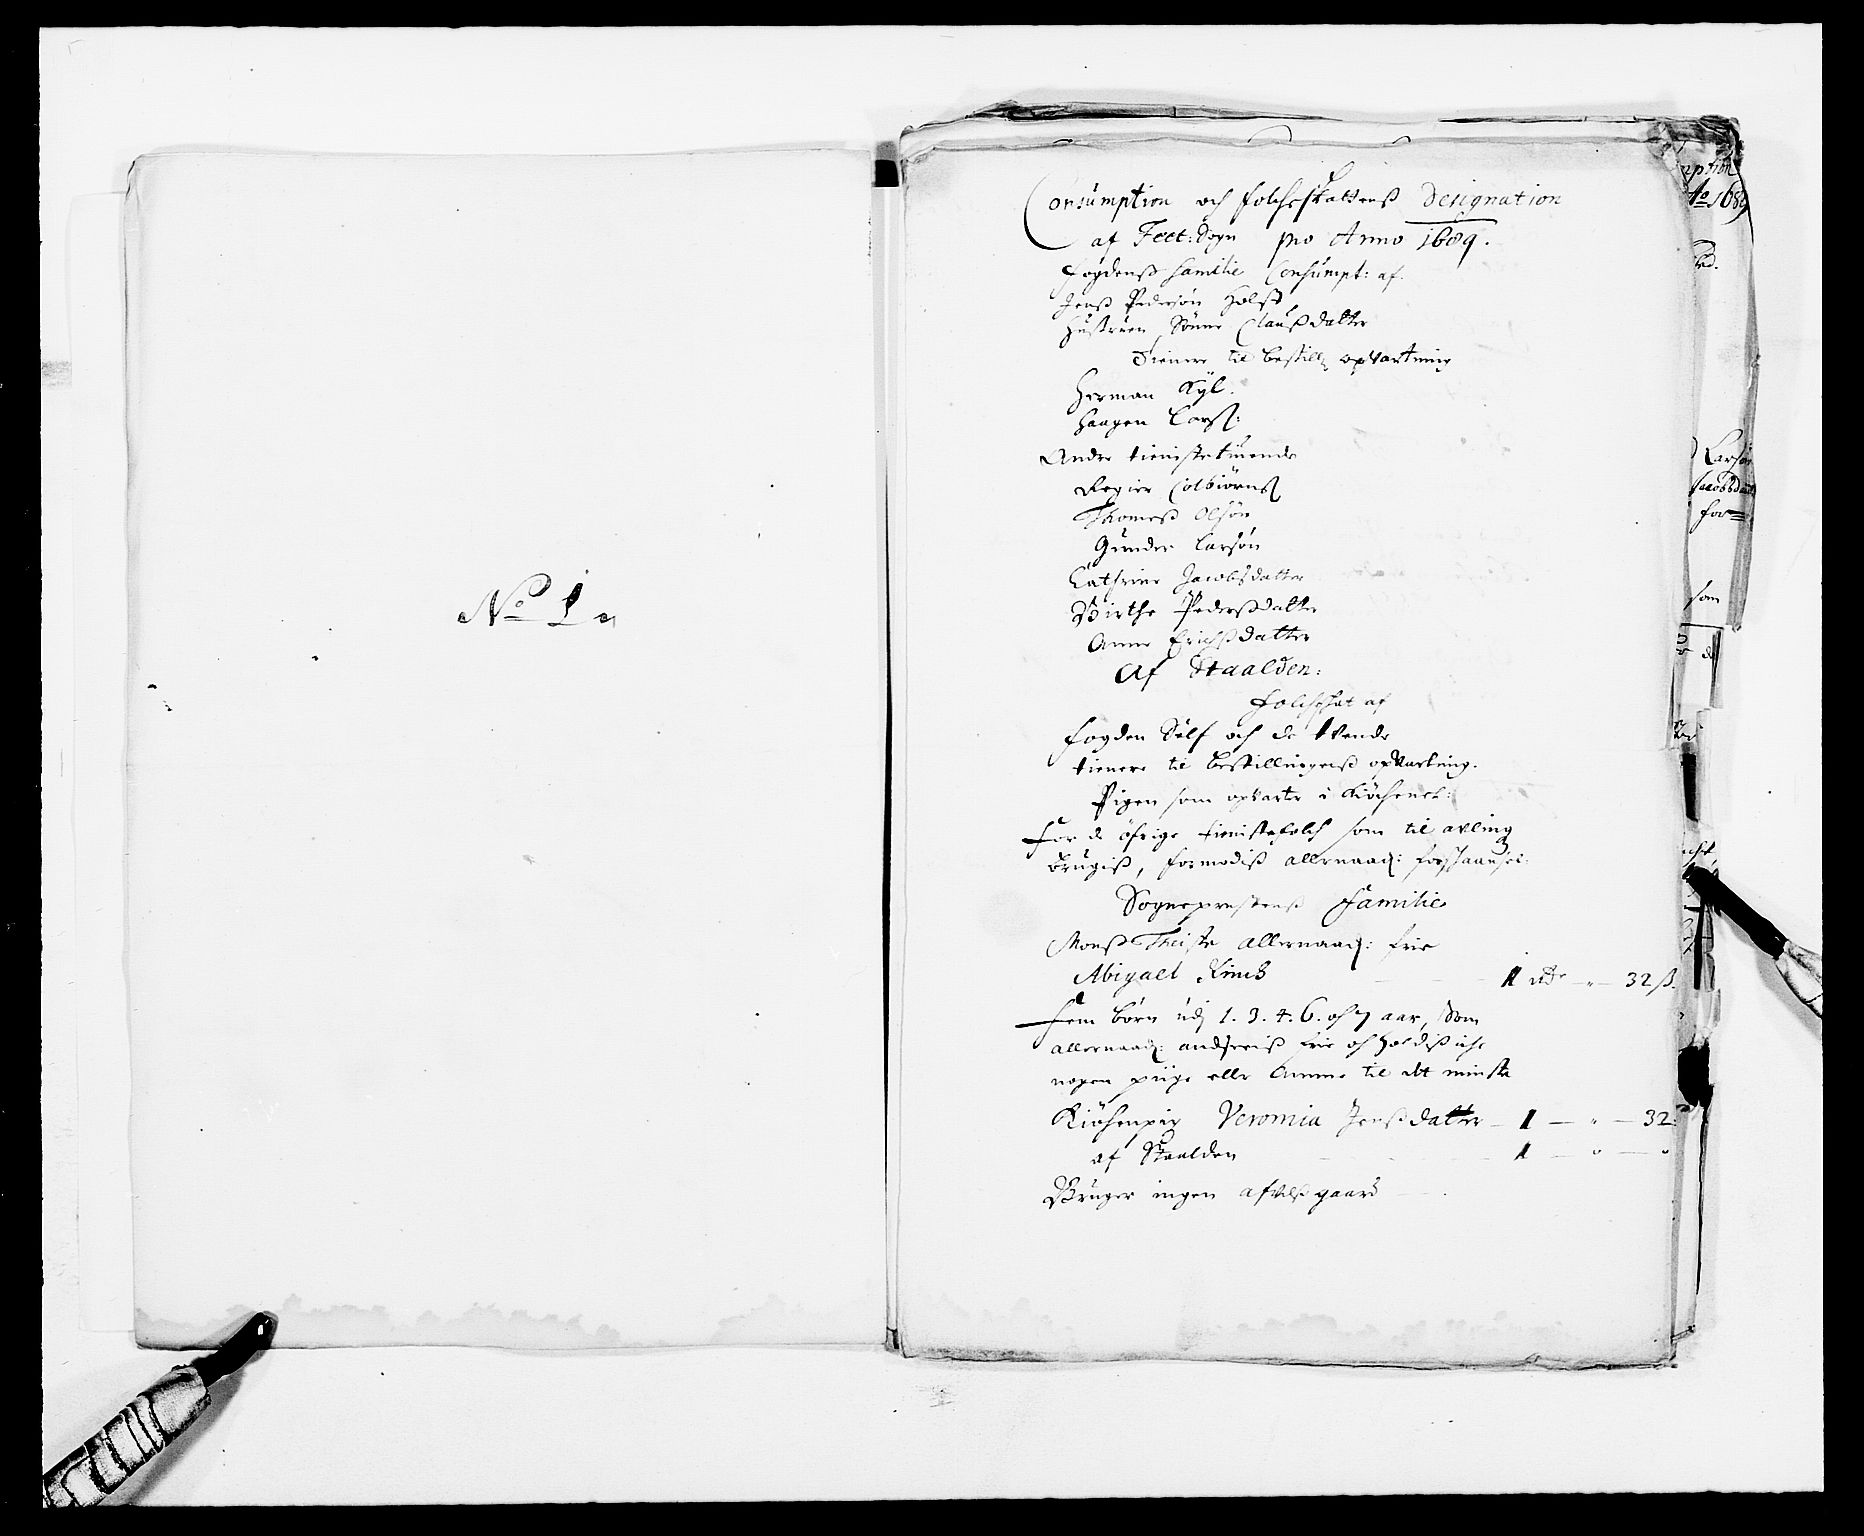 No 1.
Consumption och folcheskattens Designation
af Feet: Sogn pro Anno 1689.
Fogdenß familie Consumpt: af.
Jenß Pedersøn Holst
Hustruen Sønne Claußdatter
Tienere til bestill opvartning
Herman Kyl.
Haagen Larß:
Andre tienistetiuende
Regier Colbiørnß
Thomeß Olsøn
Gunder Larsøn
Cathrine Jacobsdatter
Birthe Pederßdatter
Anne Erichßdatter
Af Staalden:
Folcheskat af
Fogden Self och de tvende
tienere til bestillingenß opvartning.
Pigen som opvarter i Kiøchenet:
For de øfrige tienistefolch som til avling
brugiß, formodiß allernaad: forskaansel:
Sogneprestenß Familie
Monß Theiste allernaad: frie
Abigael 1 rdr - " - 32 ß.
Fem børn udj 1. 3. 4. 6. och 7 aar, Som
allernaad: andseeiß frie och holdiß iche
nogen piige eller Amme til det minste
Kiøchenpig Veronica Jenßdatter - 1 - " - 32:
af Staalden 1 - " - "
Bruger ingen afvelßgaard
mption
Ao 1689
Larsøn
Jacobsdaat
for=
som
de